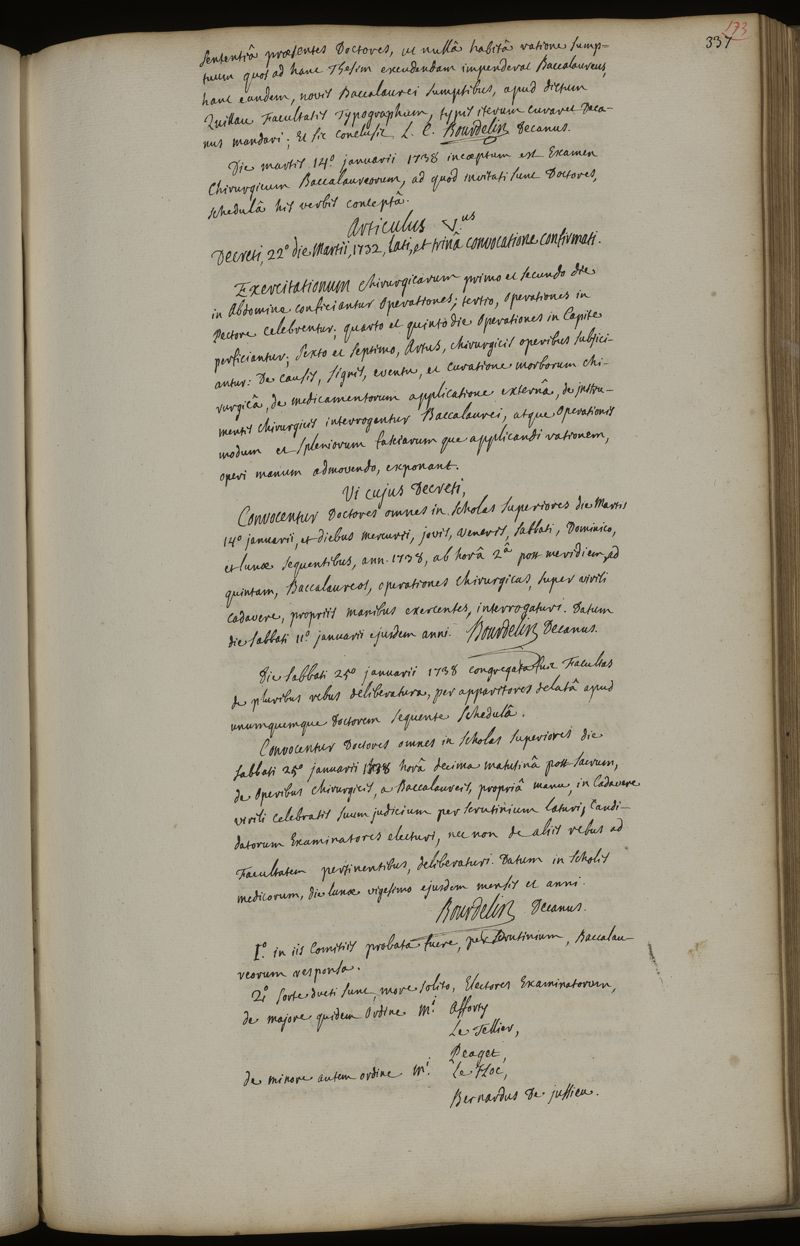 173
337
sententiâ praesentes Doctores, ut nullâ habitâ ratione sump-
tuum quos ad hanc Thesim excudendam impenderat Baccalaureus,
hanc eandem, novis Baccalaurei sumptibus, apud dictum
Quillau Facultatis Typographum, typis iterum curaret Deca-
nus mandari; Et sic conclusit L. C. Bourdelin Decanus.
Die martis 14.° januarii 1738 incaeptum est Examen
Chirurgicum Baccalaureorum, ad quod invitati sunt Doctores,
schedulâ his verbis conceptâ.
Articulus V.us
Decreti, 22.° die Martii, 1732, lati, et trinâ convocatione confirmati.
Exercitationum chirurgicarum primo et secundo die
in Abdomine conficiantur operationes; tertio, operationes in
Pectore celebrentur; quarto et quinto die operationes in Capite
perficiantur; sexto et septimo, Artus, chirurgicis operibus subjici-
antur: De causis, signis, eventu, et curatione morborum chi-
rurgicâ, de medicamentorum applicatione externâ, de instru-
mentis chirurgicis interrogentur Baccalaurei, atque operationis
modum et spleniorum fasciarum que applicandi rationem,
operi manum admovendo, exponant.
Vi cujus Decreti,
Convocentur Doctores omnes in scholas superiores die Martis
14° januarii, et diebus mercurii, jovis, veneris, sabbati, Dominico,
et lunae sequentibus, ann. 1738, ab horâ 2.â post meridiem, ad
quintam, Baccalaureos, operationes chirurgicas, super virili
cadavere, propriis manibus exercentes, interrogaturi. Datum
die sabbati 11.° januarii ejusdem anni. Bourdelin Decanus.
Die sabbati 25° januarii 1738 congregata fuit Facultas
de pluribus rebus deliberatura, per apparitores delatâ apud
unumquemque Doctorem sequente schedulâ.
Convocentur Doctores omnes in scholas superiores die
sabbati 25° januarii 1738 horâ decima matutinâ post sacrum,
de operibus chirurgicis, a Baccalaureis, propriâ manu, in Cadavere
virili celebratis suum judicium per scrutinium laturi, Candi-
datorum Examinatores electuri, nec non de aliis rebus ad
Facultatem pertinentibus, deliberaturi. Datum in scholis
medicorum, die lunae vigesimo ejusdem mensis et anni.
Bourdelin Decanus.
1.° in iis Comitiis probata fuere, per scrutinium, Baccalau-
reorum responsa.
2.° sorte ducti sunt, more solito, Electores Examinatorum,
de majore quidem ordine M.i Afforty
Le Tellier,
Peaget,
de minore autem ordine M.i Le Hoc,
Bernardus De jussieu.